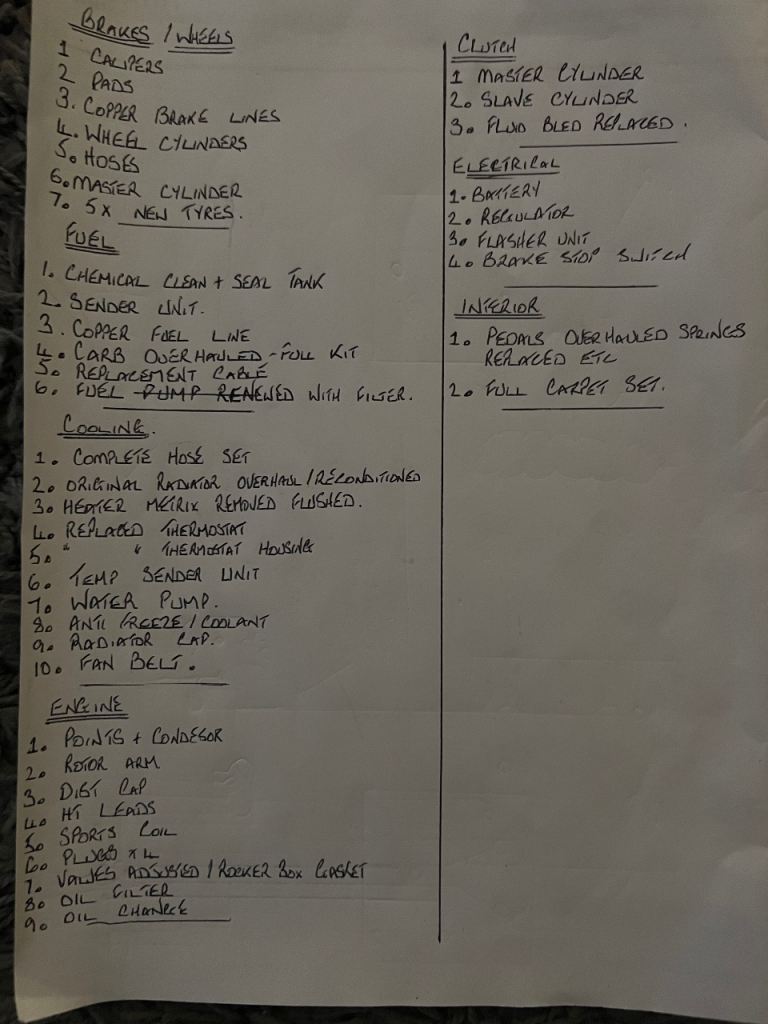 BRAKES / WHEELS
1 CALIPERS
2 PADS
3. COPPER BRAKE LINES
4. WHEEL CYLINDERS
5. HOSES
6. MASTER CYLINDER
7. 5X NEW TYRES.
FUEL
1. CHEMICAL CLEAN + SEAL TANK
2. SENDER UNIT.
3. COPPER FUEL LINE
4. CARB OVERHAULED - FULL KIT
5. REPLACEMENT CABLE
6. FUEL PUMP RENEWED WITH FILTER.
COOLING.
1. COMPLETE HOSE SET
2. ORIGINAL RADIATOR OVERHAUL / RECONDITIONED
3. HEATER METRIX REMOVED FLUSHED.
4. REPLACED THERMOSTAT
5. " " THERMOSTAT HOUSING
6. TEMP SENDER UNIT
7. WATER PUMP.
8. ANTI FREEZE / COOLANT
9. RADIATOR CAP.
10. FAN BELT.
ENGINE
1. POINTS + CONDESOR
2. ROTOR ARM
3. DIST CAP
4. HT LEADS
5. SPORTS COIL
6. PLUGS X 4
7. VALVES ADJUSTED / ROCKER BOX GASKET
8. OIL FILTER
9. OIL CHANGE
CLUTCH
1 MASTER CYLINDER
2. SLAVE CYLINDER
3. FLUID BLED REPLACED.
ELECTRICAL
1. BATTERY
2. REGULATOR
3. FLASHER UNIT
4. BRAKE STOP SWITCH
INTERIOR
1. PEDALS OVERHAULED SPRINGS
REPLACED ETC
2. FULL CARPET SET.